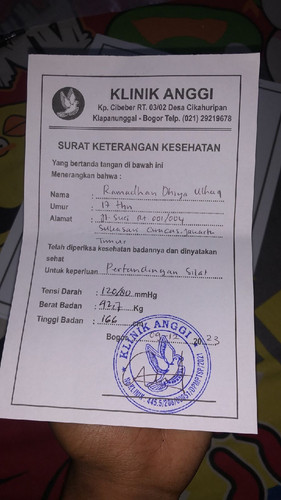 KLINIK ANGGI
Kp. Cibeber RT. 03/02 Desa Cikahuripan
Klapanunggal - Bogor Telp. (021) 29219678
SURAT KETERANGAN KESEHATAN
Yang bertanda tangan di bawah ini
Menerangkan bahwa :
Nama : Ramadhan Dhiya Ulhaq
Umur : 17 thn
Alamat : RT 001/004
Ciracas, Jakarta
Timur
Telah diperiksa kesehatan badannya dan dinyatakan
sehat
Untuk keperluan : Pertandingan Silat
Tensi Darah : 120/80 mmHg
Berat Badan : 97,7 Kg
Tinggi Badan : 166
Bogor 20 23
KLINIK ANGGI